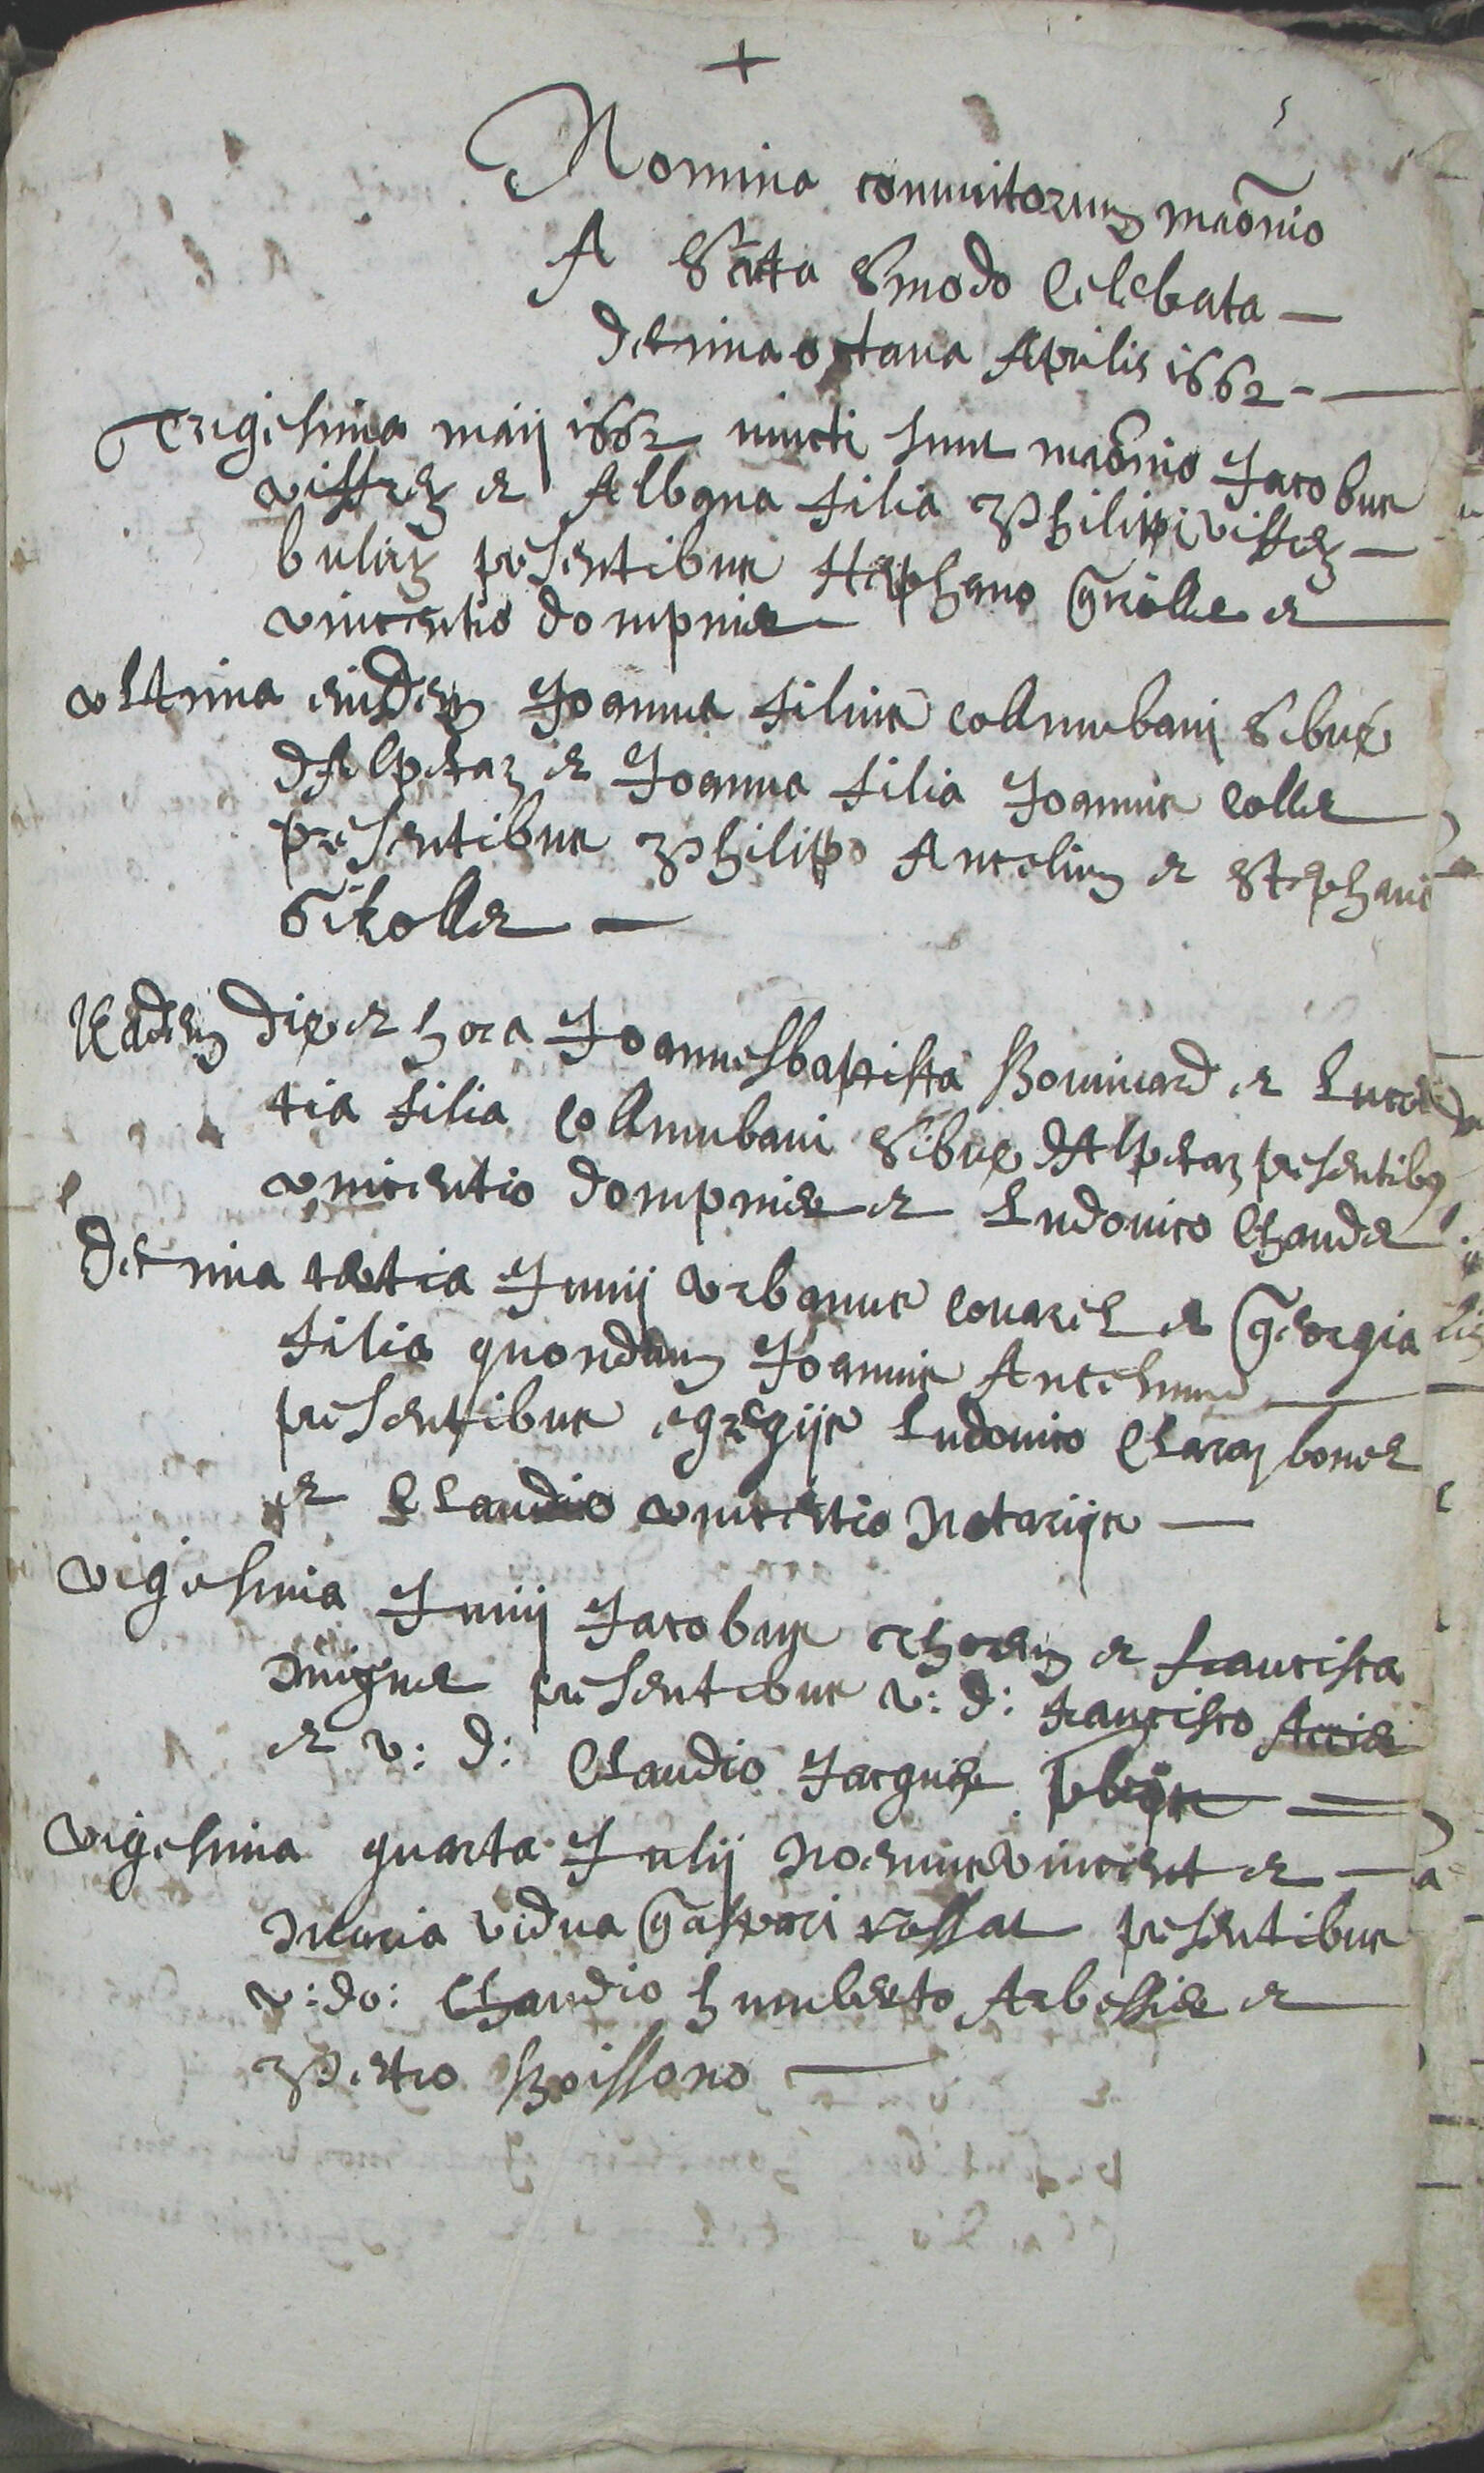 +
Nomina coniunctorum mrõnio
A Sãta Sinodo Celebrata —
decima octava Aprilis 1662 —
Trigesima maij 1662 iuncti sunt mrõnio Jacobus
et Albana filia Philippi —
presentibus Stephano Grioller et
vincentio dompmier —
ultima eiusdem Joannes filius collumbani Sibué
d'Alpetaz et Joanna filia Joannis collet
presentibus Philippo Ancelin et Stephano
Grioller —
Eadem die et hora Joannesbaptista Bonniuard et
tia filia Collumbani Sibué d'Alpetaz presentibus
vincentio dompmier et Ludovico Chaudet
decima tertia Junij vrbanus couarel et Georgia
filia quondam Joannis —
presentibus egregijs Ludovico Claraz bonet
et Claudio vincentio Notarijs —
vigesima Junij Jacobus et francisca
Mignet presentibus v: d: francisco
et v: d: Claudio Jacquier pbrijs =
vigesima quarta Julij vincent et —
Maria vidua Gaspari rossat presentibus
v: do: Claudio humberto Arbessier et
Petro Boissono —